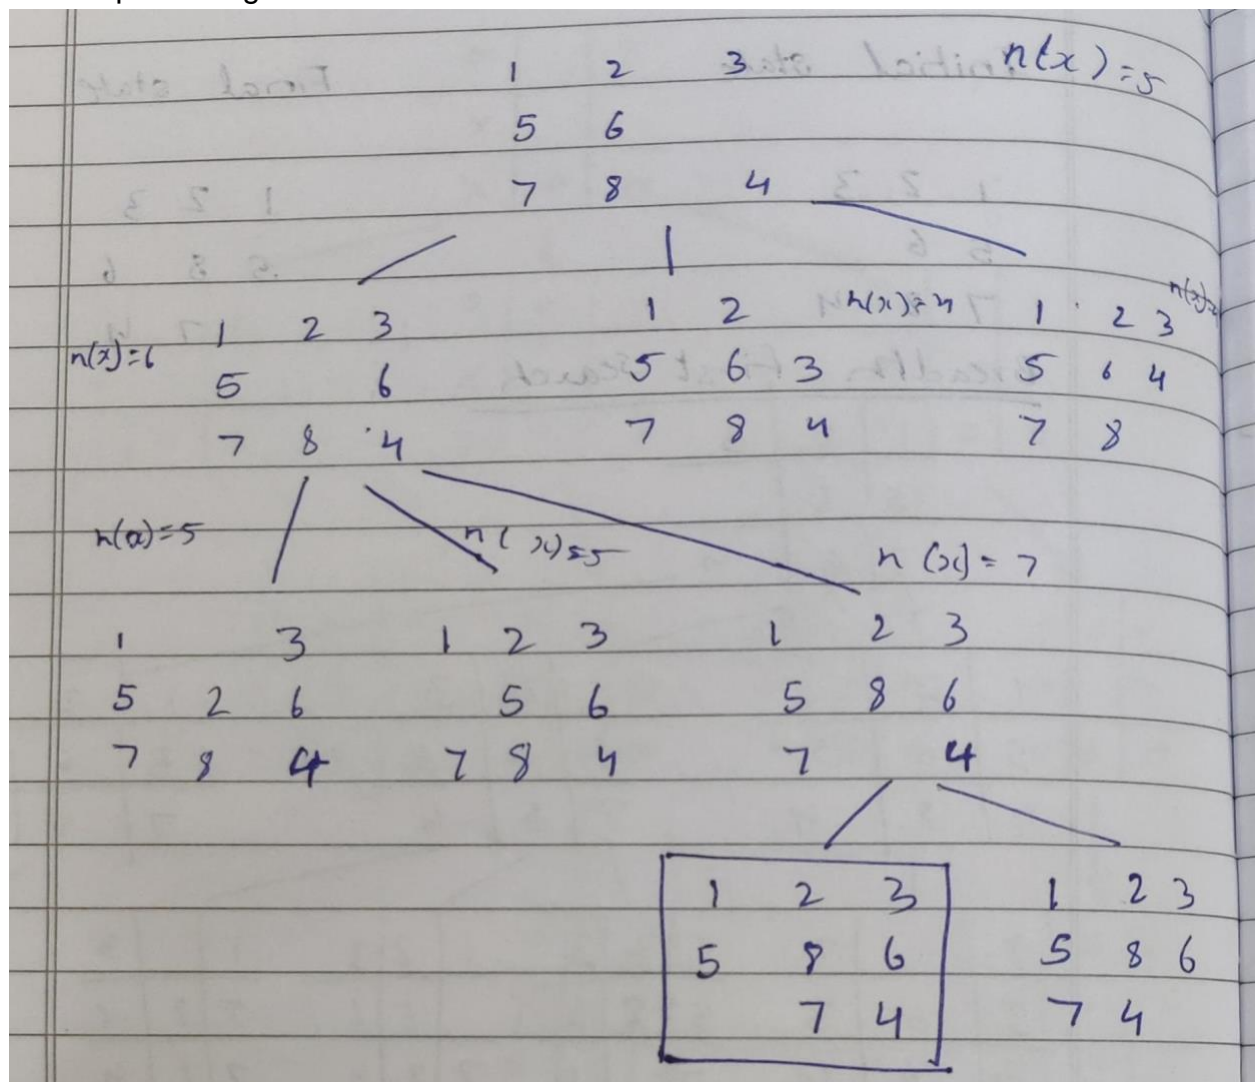 1 2 3 n(x)=5
5 6
7 8 4
n(x)=6 1 2 3
5 6
7 8 4
1 2
5 6 3
7 8 4
1 2 3
5 6 4
7 8
n(x)=5
1 3
5 2 6
7 8 4
n(x)=5
1 2 3
5 6
7 8 4
n(x)=7
1 2 3
5 8 6
7 4
1 2 3
5 8 6
7 4
1 2 3
5 8 6
7 4